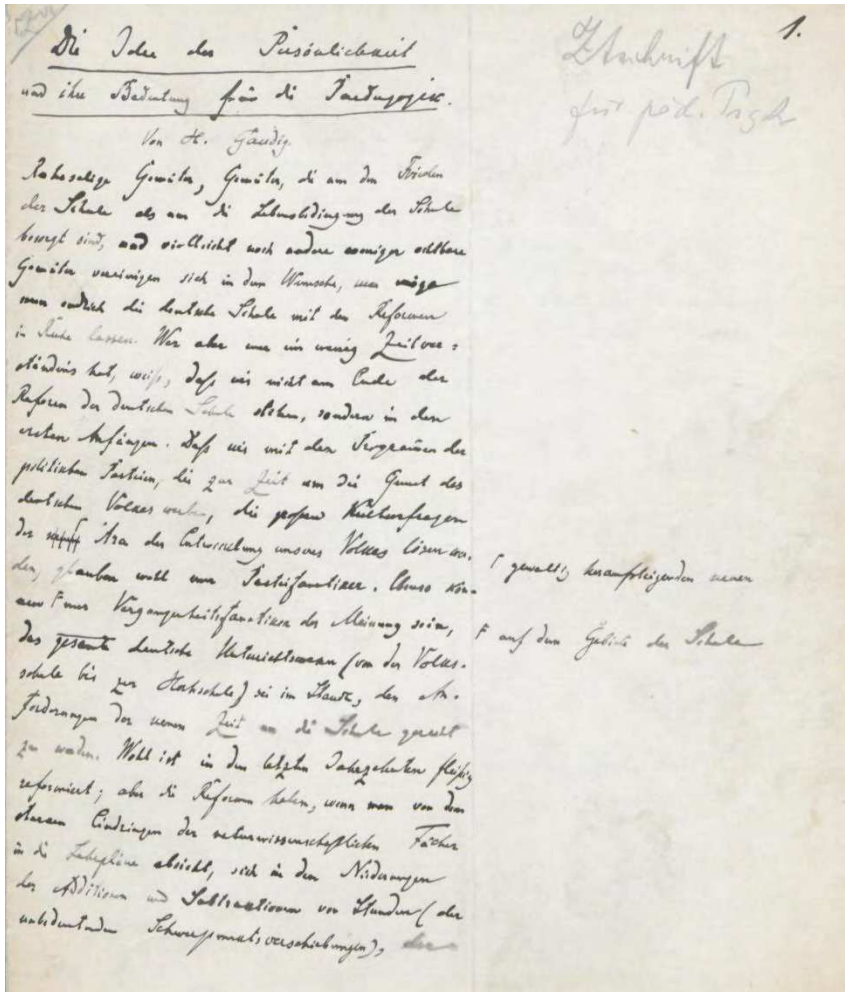 1.
Ztschrift
für päd. Psych
Die Idee der Persönlichkeit
und ihre Bedeutung für die Paedagogik.
Von H. Gaudig.
Ruheselige Gemüter, Gemüter, die um den Frieden
der Schule als um die Lebensbedingung der Schule
besorgt sind, und vielleicht noch andere weniger achtbare
Gemüter vereinigen sich in dem Wunsche, man möge
nun endlich die deutsche Schule mit den Reformen
in Ruhe lassen. Wer aber nur ein wenig Zeitver-
ständnis hat, weiß, daß wir nicht am Ende der
Reform der deutschen Schule stehen, sondern in den
ersten Anfängen. Daß wir mit den Programmen der
politischen Parteien, die zur Zeit um die Gunst des
deutschen Volkes werben, die großen Kulturfragen
der Ära der Entwicklung unseres Volkes lösen wer-
⌈ gewaltig heraufsteigenden neuen
den, glauben wohl nur Parteifanatiker. Ebenso kön-
nen F nur Vergangenheitsfanatiker der Meinung sein,
F auf dem Gebiete der Schule
das gesamte deutsche Unterrichtswesen (von der Volks-
schule bis zur Hochschule) sei im Stande, den An-
forderungen der neuen Zeit an die Schule gerecht
zu werden. Wohl ist in den letzten Jahrzehnten fleißig
reformiert; aber die Reformen haben, wenn man von dem
starken Eindringen der naturwissenschaftlichen Fächer
in die Lehrpläne absieht, sich in den Niederungen
der Additionen und Subtraktionen von Stunden (der
unbedeutenden Schwerpunktsverschiebungen), der